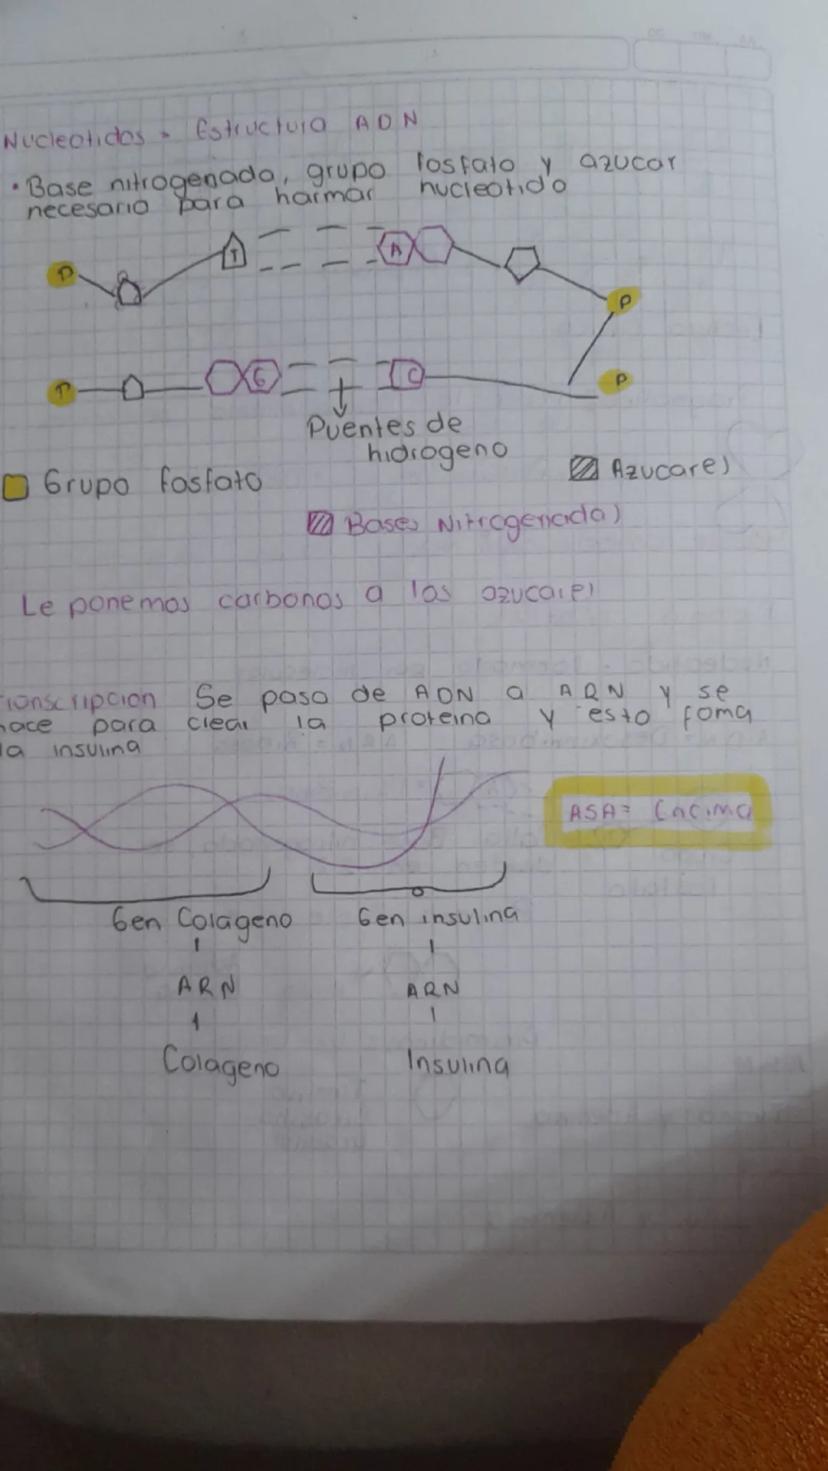 Nucleotidos = Estructura ADN
• Base nitrogenada, grupo fosfato y azucar
necesario para harmar nucleotido
P T A P
P G C P
Puentes de
hidrogeno
Grupo fosfato
Azucares
Bases Nitrogenadas
Le ponemos carbonos a los azucares
Transcripcion Se pasa de ADN a ARN y se
hace para crear la proteina y esto foma
la insulina
ASA = Encima
Gen Colageno Gen insulina
ARN ARN
Colageno Insulina